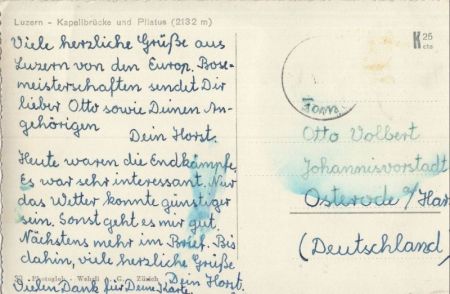 Luzern - Kapellbrücke und Pilatus (2132 m)
K 25
cts
Viele herzliche Grüße aus
Luzern von den Europ. Bose-
meisterschaften sendet Dir
lieber Otto sowie Deinen An-
gehörigen
Dein Horst.
Heute waren die Endkämpfe.
Es war sehr interessant. Nur
das Wetter konnte günstiger
sein. Sonst geht es mir gut.
Nächstens mehr im Brief. Bis
dahin, viele herzliche Grüße
Dein Horst.
Vielen Dank für Deine Karte
Photoglob - Wehrli A. G., Zürich
Fam.
Otto Volbert
Johannisvorstadt
Osterode a/Har
(Deutschland)